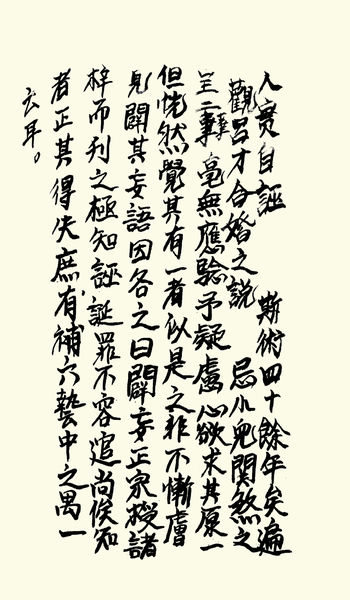 人實自誣 斯術四十餘年矣遍
觀呂才合婚之說 忌小兒關煞之
毫無應驗予疑慮心欲求其原一
但恍然覺其有一者似是之非不慚膚
見闢其妄語因各之曰闢妄正家授諸
梓而刊之極知誣誕罪不容逭尚俟知
者正其得失庶有補六藝中之禺一
云耳。